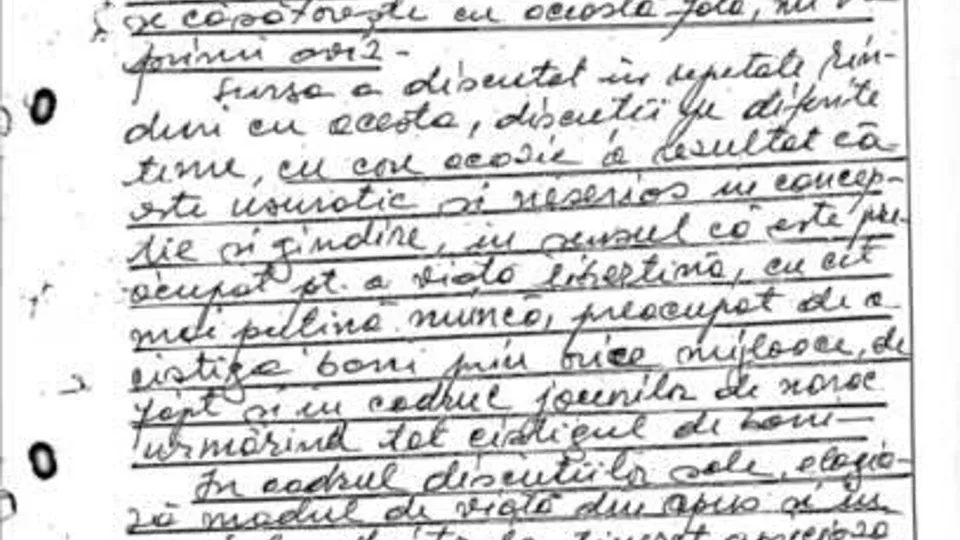 se căsătorește cu această fată, nu
primi aviz -
Sursa a discutat în repetate rîn-
duri cu acesta, discuții pe diferite
teme, cu care ocazie a rezultat că
este usuratic si neserios in concep-
tie si gindire, in sensul că este pre-
ocupat pt. a viată libertină, cu cît
mai putină muncă, preocupat de a
cistiga bani prin orice mijloace, de
fapt si in cadrul jocurilor de noroc
urmărind tot cistigul de bani -
In cadrul discutiilor sale, elogia-
ză modul de viată din apus si in